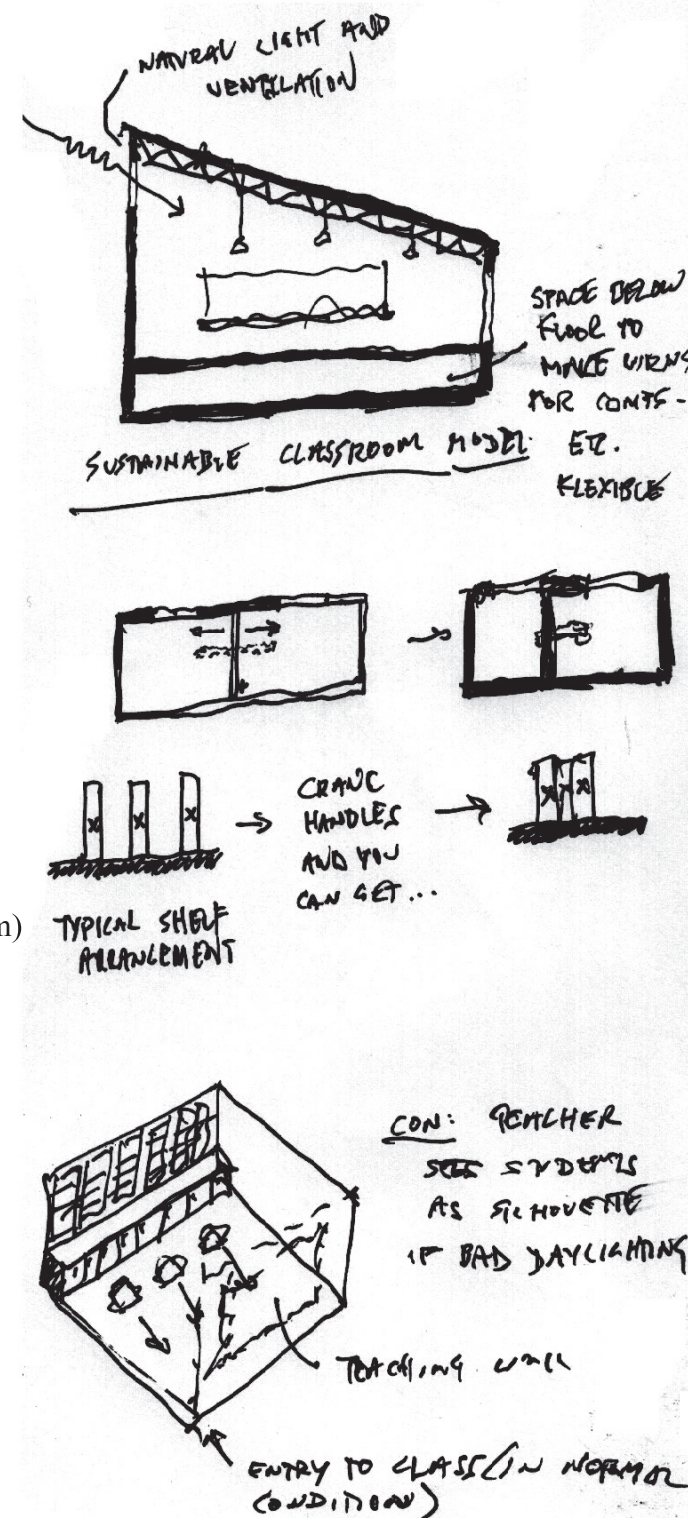 NATURAL LIGHT AND
VENTILATION
SPACE BELOW
FLOOR TO
MAKE
FOR
ETC.
FLEXIBLE
SUSTAINABLE CLASSROOM MODEL
CRANK
HANDLES
AND YOU
CAN GET...
m)
TYPICAL SHELF
ARRANGEMENT
CON: TEACHER
SEES STUDENTS
AS SILHOUETTE
IF BAD DAYLIGHTING
TEACHING WALL
ENTRY TO CLASS (IN NORMAL
CONDITION)